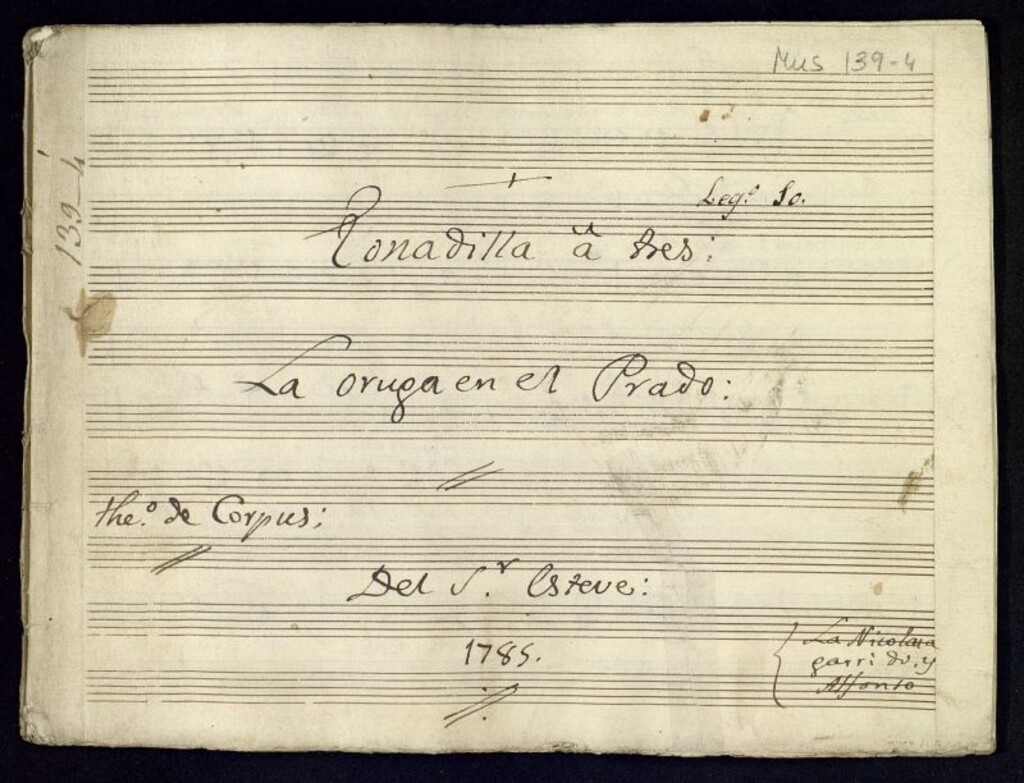 Mus 139-4
139-4
Leg.º 10.
Tonadilla â tres:
La oruga en el Prado:
the.º de Corpus:
Del S.r Esteve:
1785.
La Nicolasa
garrido, y
Alfonso